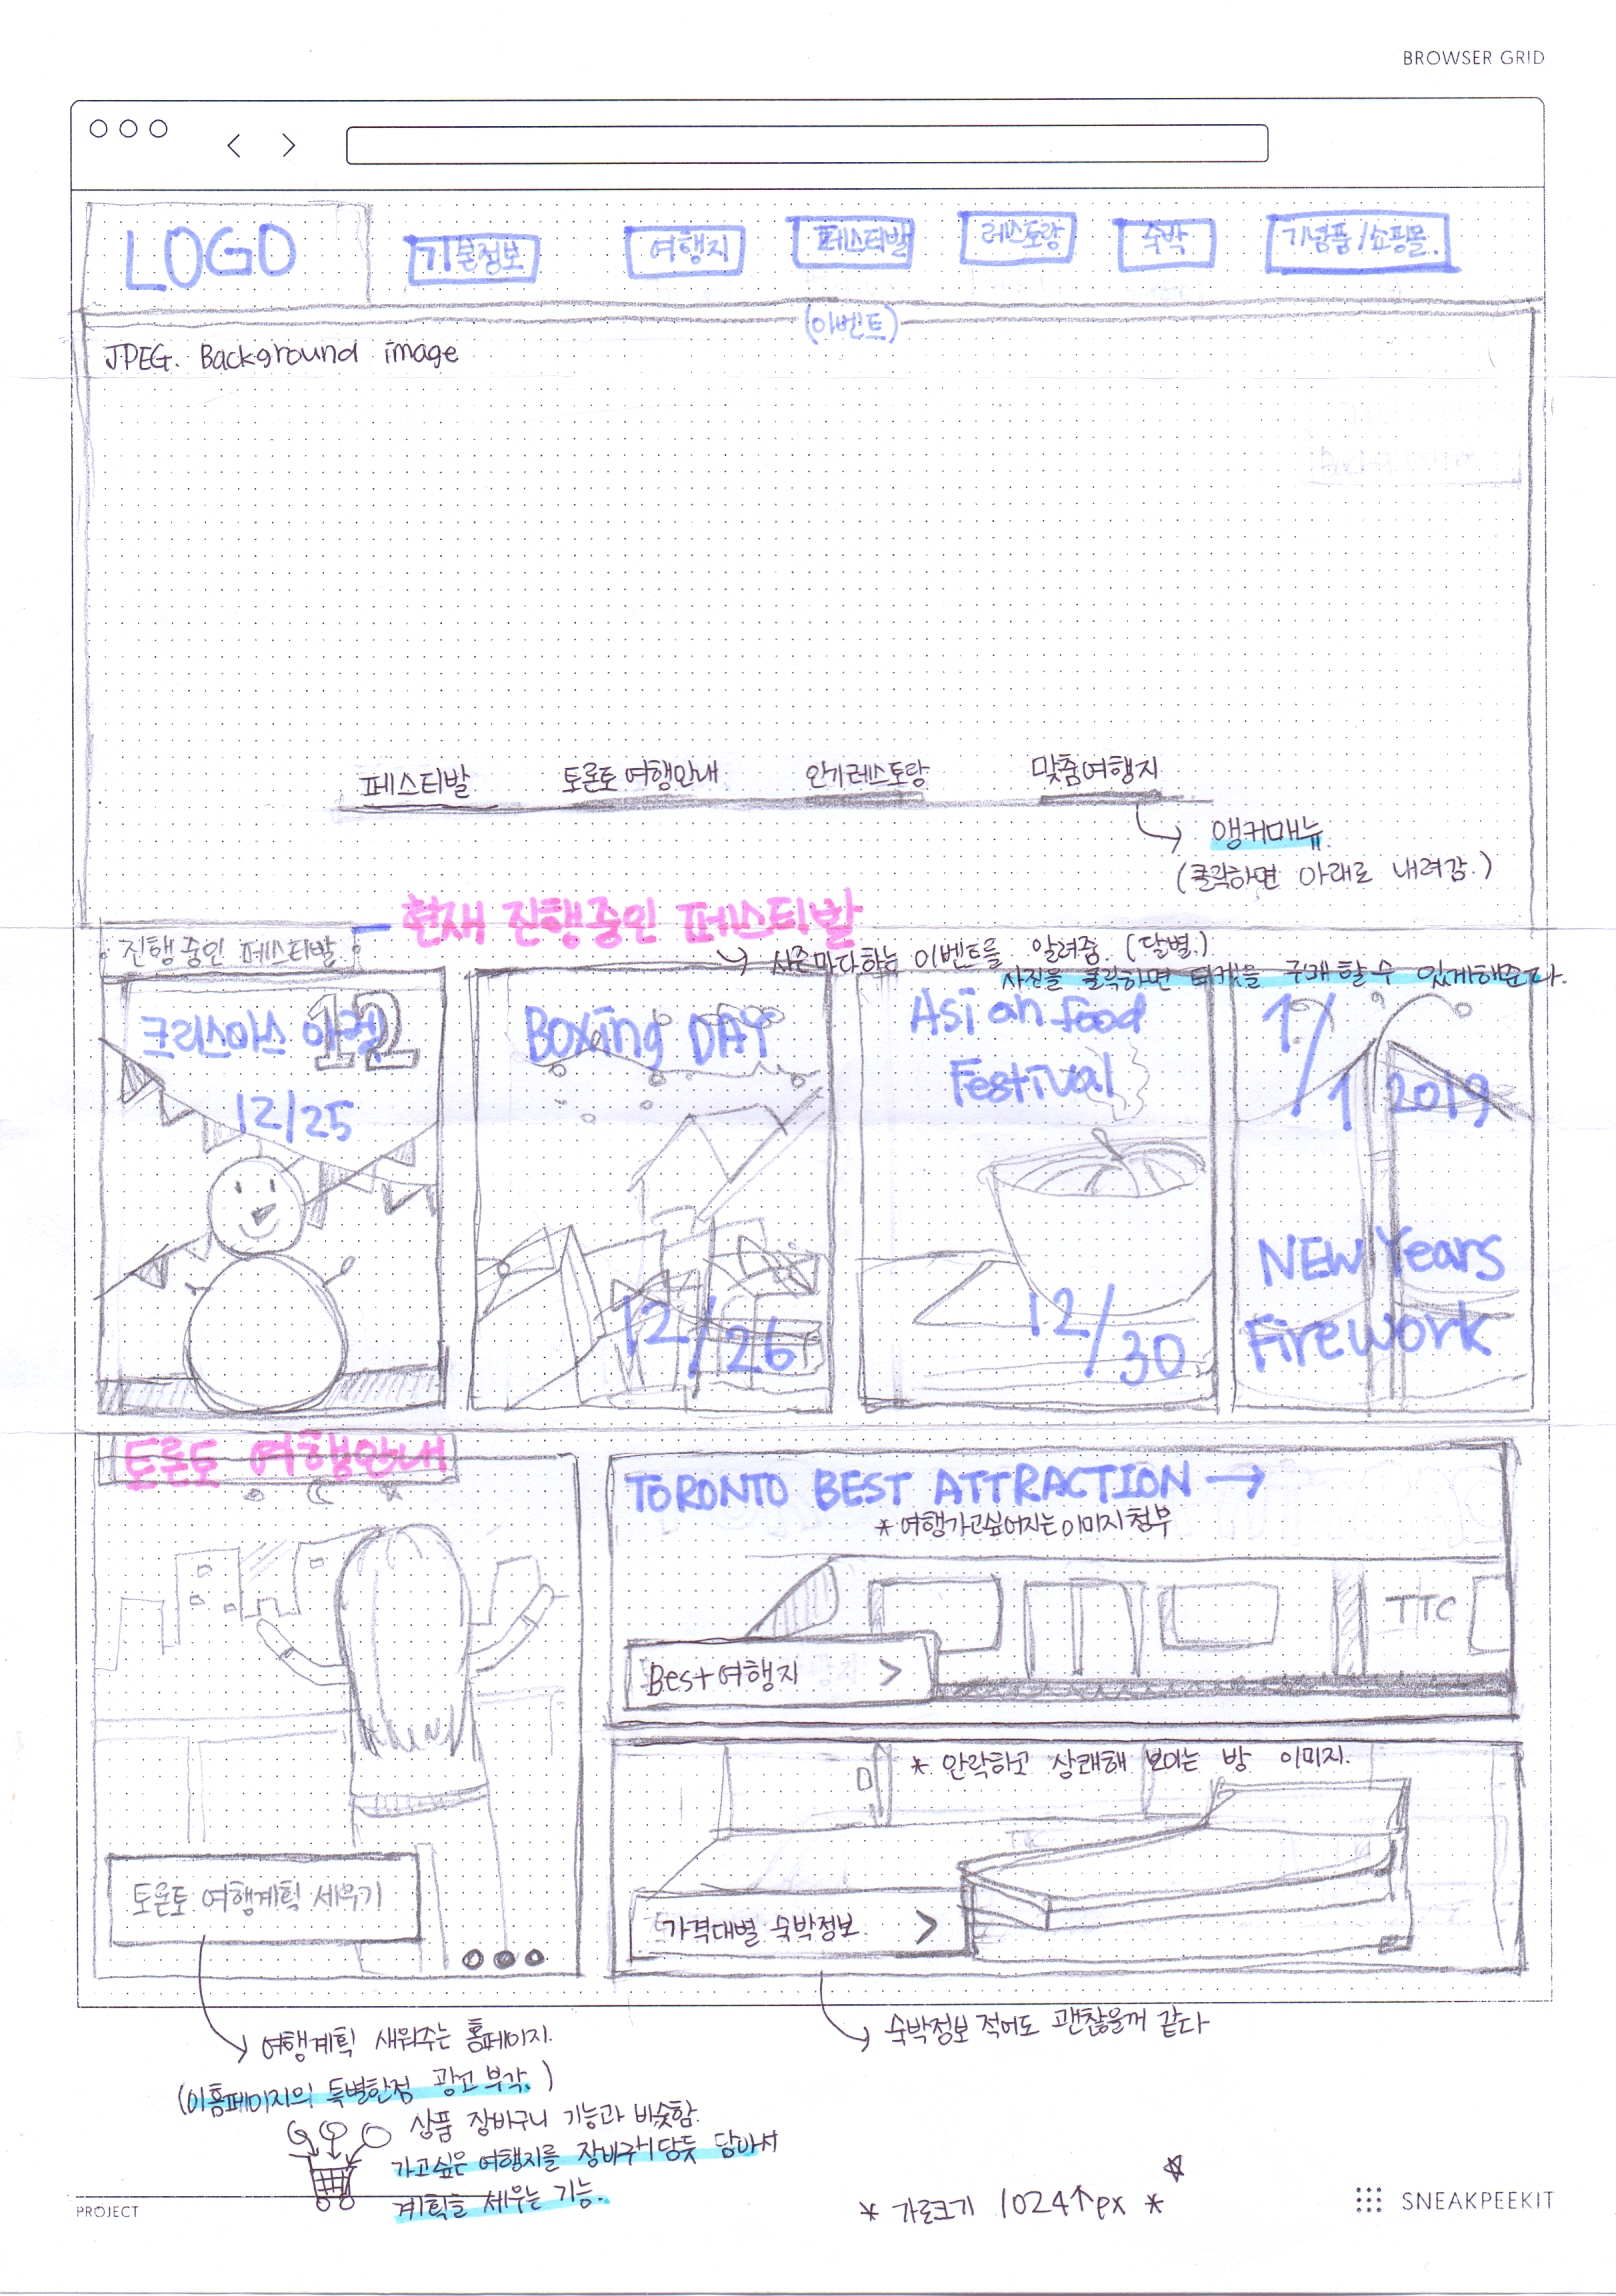 BROWSER GRID
LOGO
기본정보
여행지
페스티발
레스토랑
숙박
기념품/쇼핑몰.
(이벤트)
JPEG. Background image
페스티발
토론토 여행안내
인기레스토랑
맞춤여행지
앵커매뉴
(클릭하면 아래로 내려감.)
현재 진행중인 페스티발
진행중인 페스티발
시즌마다하는 이벤트를 알려줌. (달별.)
사진을 클릭하면 티켓을 구매 할 수 있게해준다.
크리스마스
12
12/25
Boxing DAY
12/26
Asian food
Festival
12/30
1/1 2019
NEW Years
Firework
토론토 여행안내
TORONTO BEST ATTRACTION →
* 여행가고싶어지는 이미지 첨부
TTC
Best 여행지 >
* 안락하고 상쾌해 보이는 방 이미지.
토론토 여행계획 세우기
가격대별 숙박정보 >
여행계획 새워주는 홈페이지.
(이홈페이지의 특별한점 광고 부각.)
상품 장바구니 기능과 비슷함.
가고싶은 여행지를 장바구니담듯 담아서
계획을 세우는 기능.
숙박정보 적어도 괜찮을꺼 같다
* 가로크기 1024↑px *
PROJECT
SNEAKPEEKIT